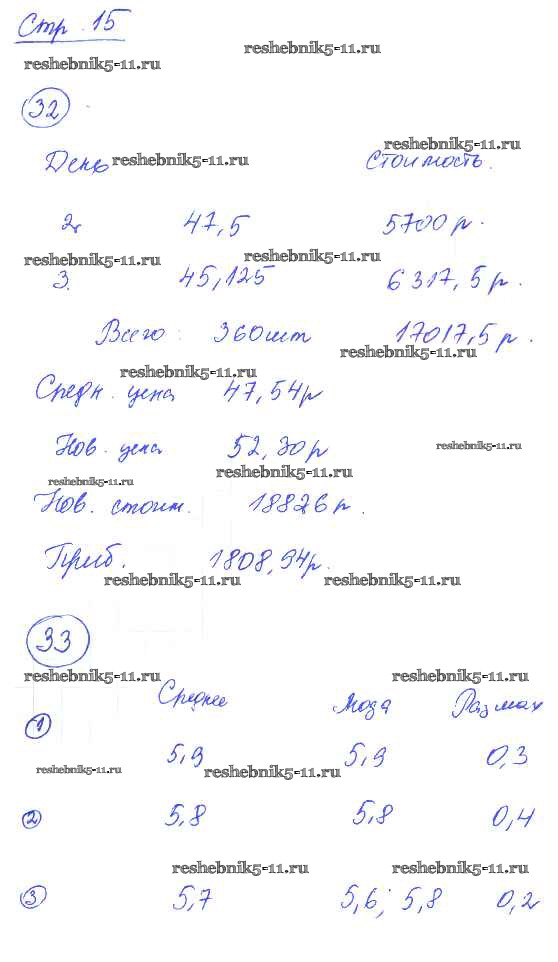 Стр. 15
reshebnik5-11.ru
reshebnik5-11.ru
32
reshebnik5-11.ru
День reshebnik5-11.ru Стоимость.
2 47,5 5700 р.
reshebnik5-11.ru reshebnik5-11.ru
3. 45,125 6317,5 р.
Всего: 360 шт 17017,5 р.
reshebnik5-11.ru
reshebnik5-11.ru
Средн. цена 47,54 р
Нов. цена 52,30 р
reshebnik5-11.ru
reshebnik5-11.ru
reshebnik5-11.ru
Нов. стоим. 18826 р.
Приб. 1808,94 р.
reshebnik5-11.ru reshebnik5-11.ru
33
reshebnik5-11.ru reshebnik5-11.ru
Среднее Мода Размах
1 5,9 5,9 0,3
reshebnik5-11.ru reshebnik5-11.ru
2 5,8 5,8 0,4
reshebnik5-11.ru reshebnik5-11.ru
3 5,7 5,6; 5,8 0,2